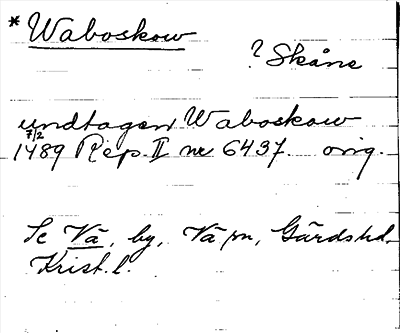 * Waboskow
? Skåne
undtagen Waboskow
7/2
1489 Rep. II nr 6437. orig.
Se Vä, by, Vä sn, Gärds hd.
Krist. l.